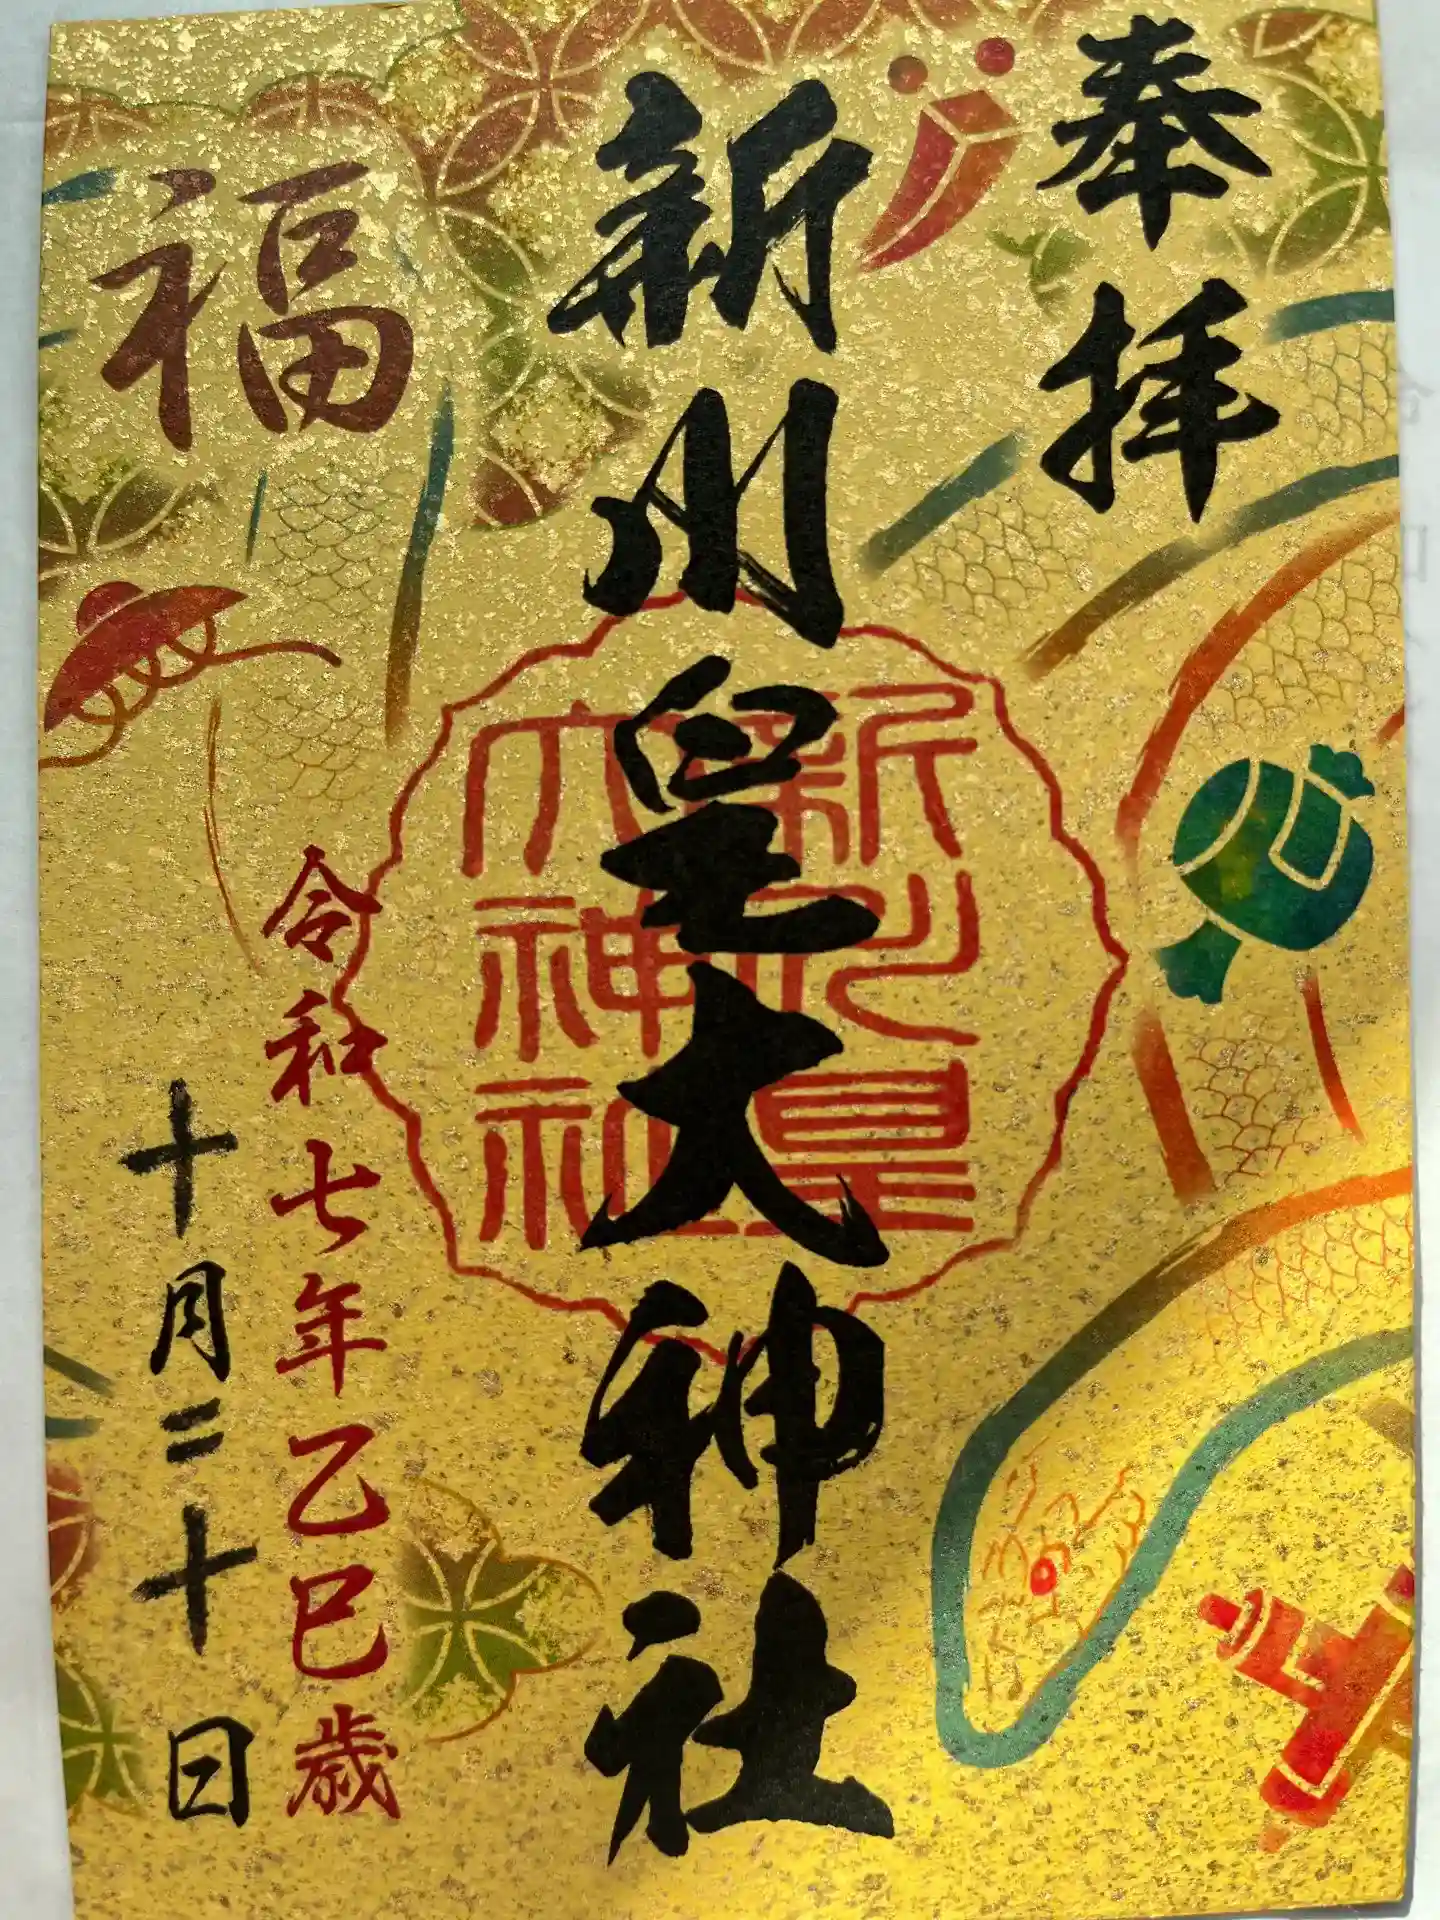 奉拝
新川皇大神社
新川皇
大神社
福
令和七年乙巳歳
十月二十日